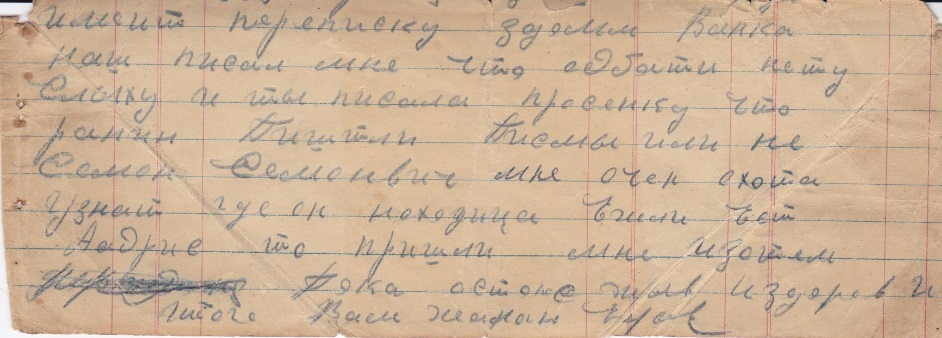 имеит переписку здемьм Ванка
наш писал мне что одбати нету
Слыху и ты писала просенку что
ранин Пишитли Писмы или не
Семон Семоневич мне очен охота
Узнат где он находица Ежили Ест
Аадрис то пришли мне изотем
Пока остаюс жыв издоров и
Итого Вам жалаю